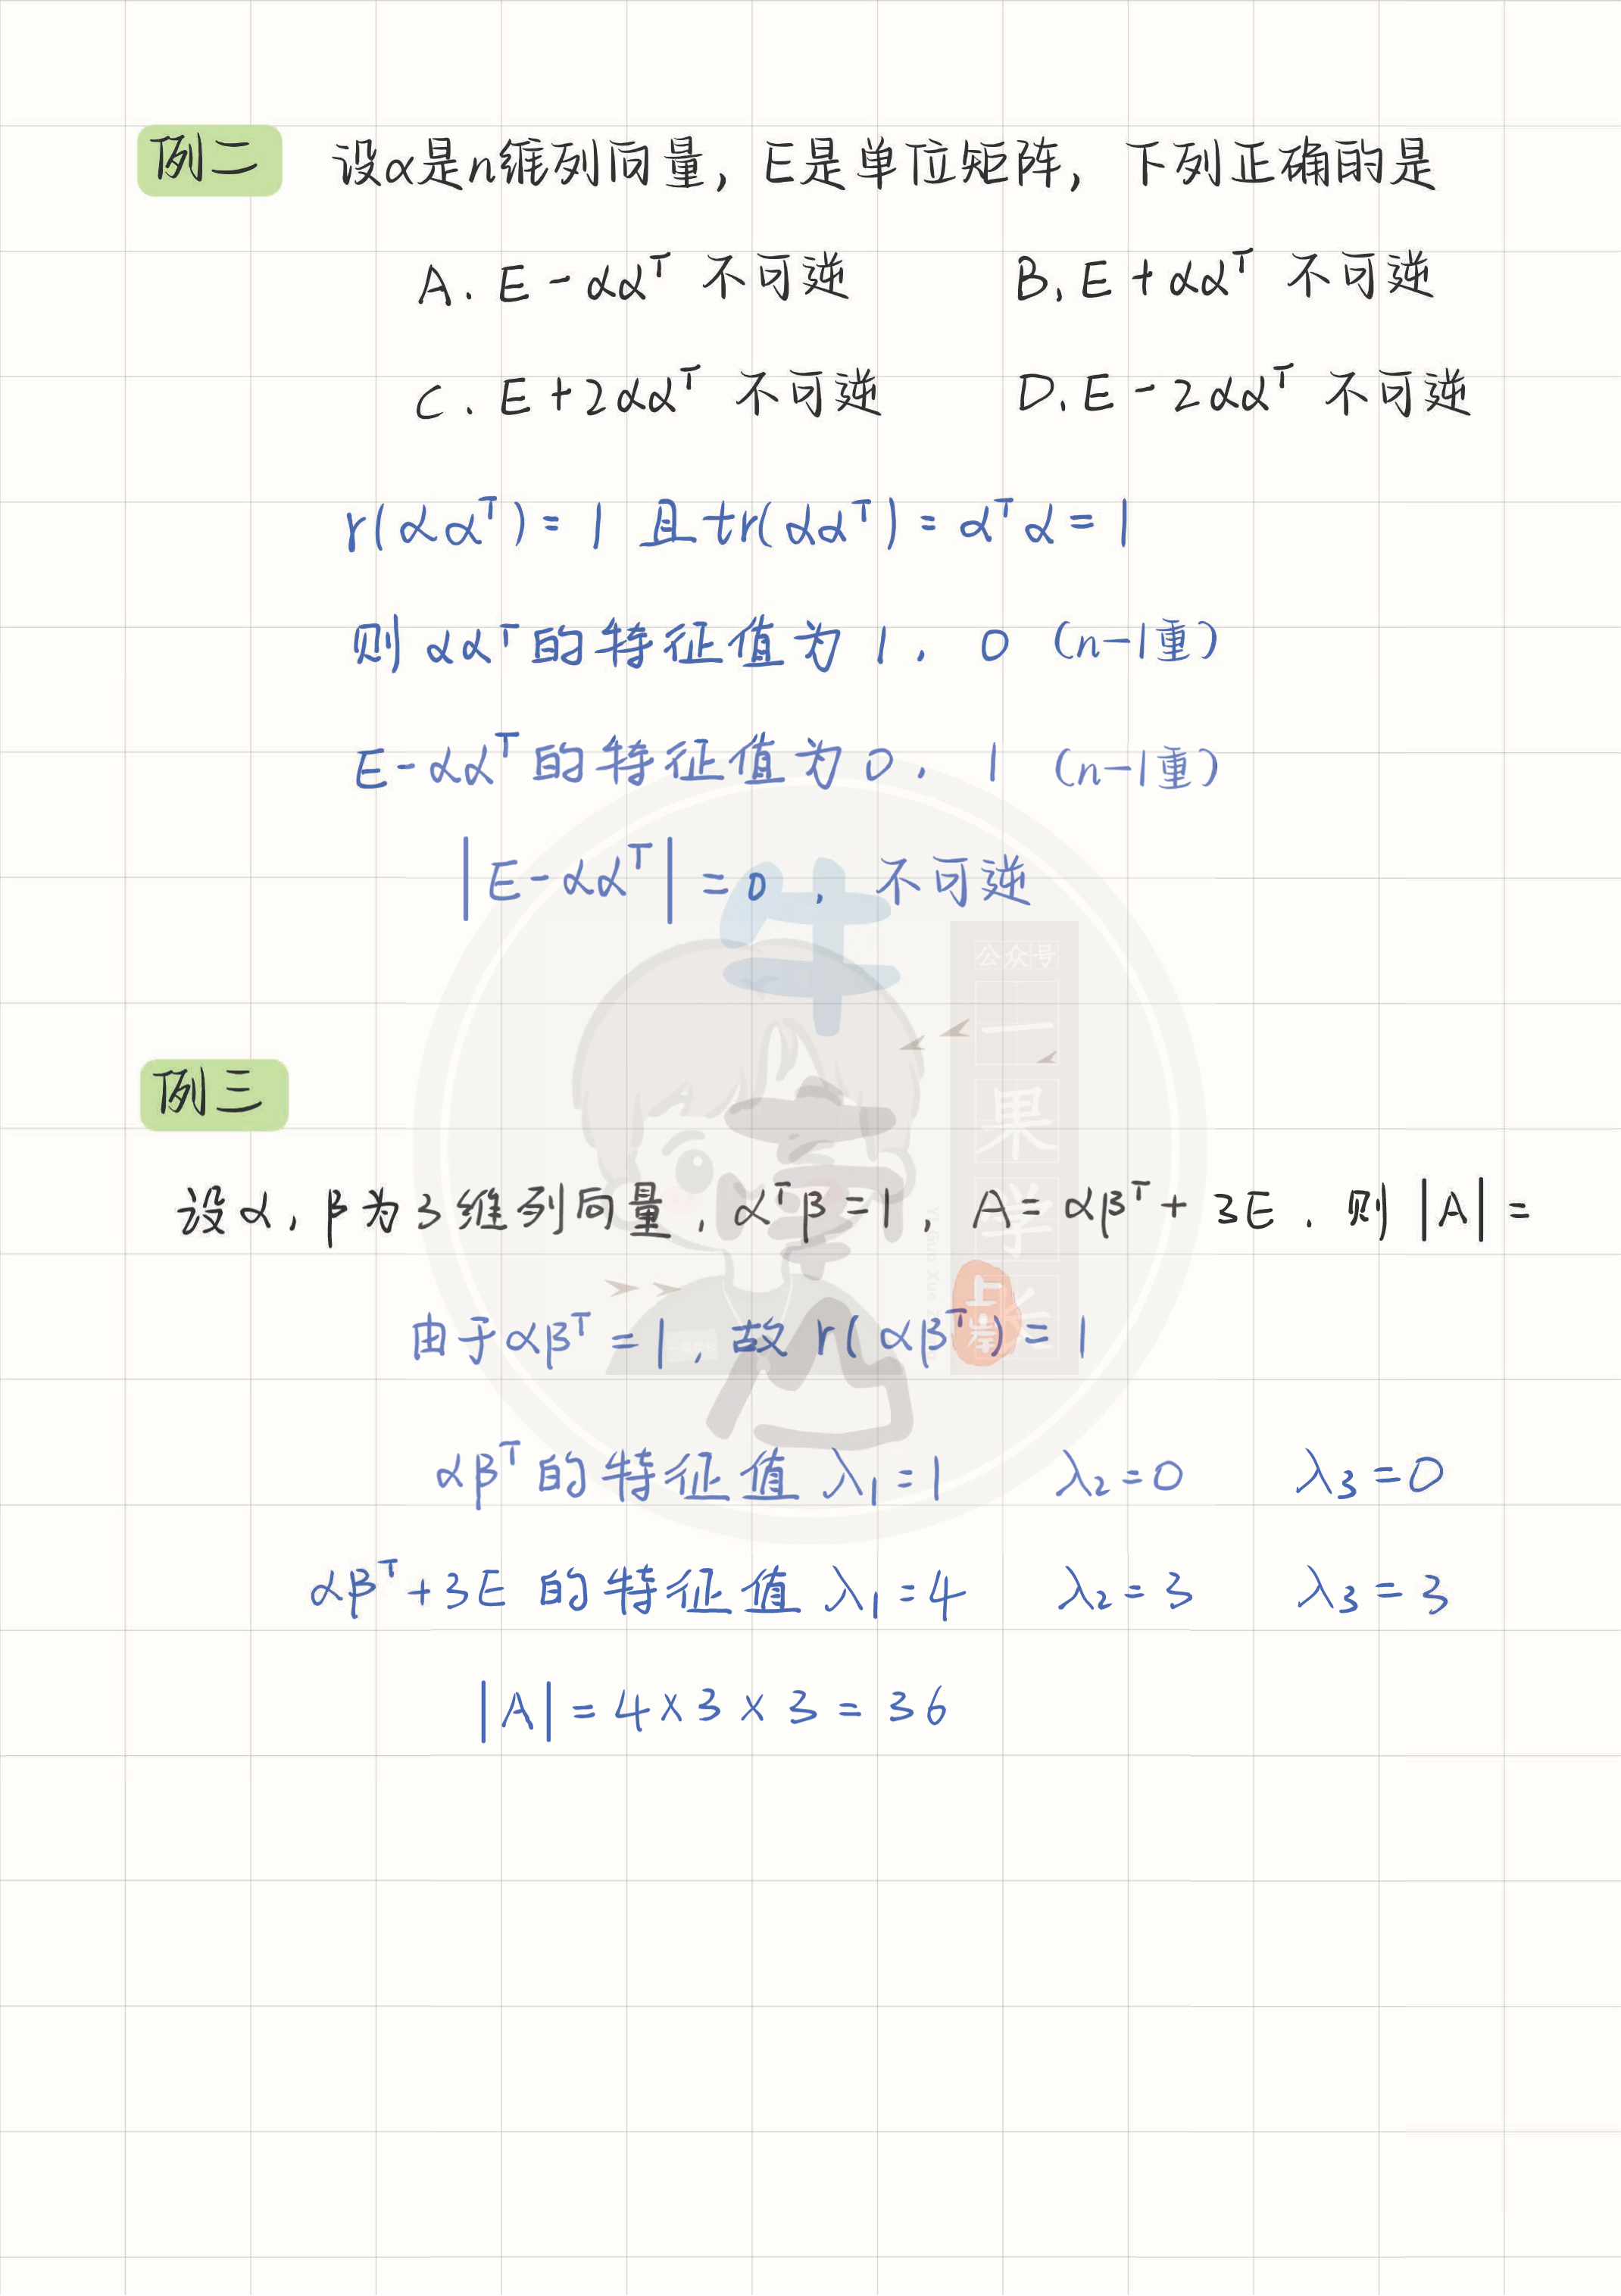 例二 设α是n维列向量，E是单位矩阵，下列正确的是
A. E - αα^T 不可逆 B. E + αα^T 不可逆
C. E + 2αα^T 不可逆 D. E - 2αα^T 不可逆
r(αα^T) = 1 且 tr(αα^T) = α^Tα = 1
则 αα^T 的特征值为 1, 0 (n-1重)
E - αα^T 的特征值为 0, 1 (n-1重)
|E - αα^T| = 0, 不可逆
公众号
一果学长
上岸
例三
设α, β为3维列向量, α^Tβ = 1, A = αβ^T + 3E. 则 |A| =
由于 αβ^T = 1, 故 r(αβ^T) = 1
αβ^T 的特征值 λ₁ = 1 λ₂ = 0 λ₃ = 0
αβ^T + 3E 的特征值 λ₁ = 4 λ₂ = 3 λ₃ = 3
|A| = 4 × 3 × 3 = 36